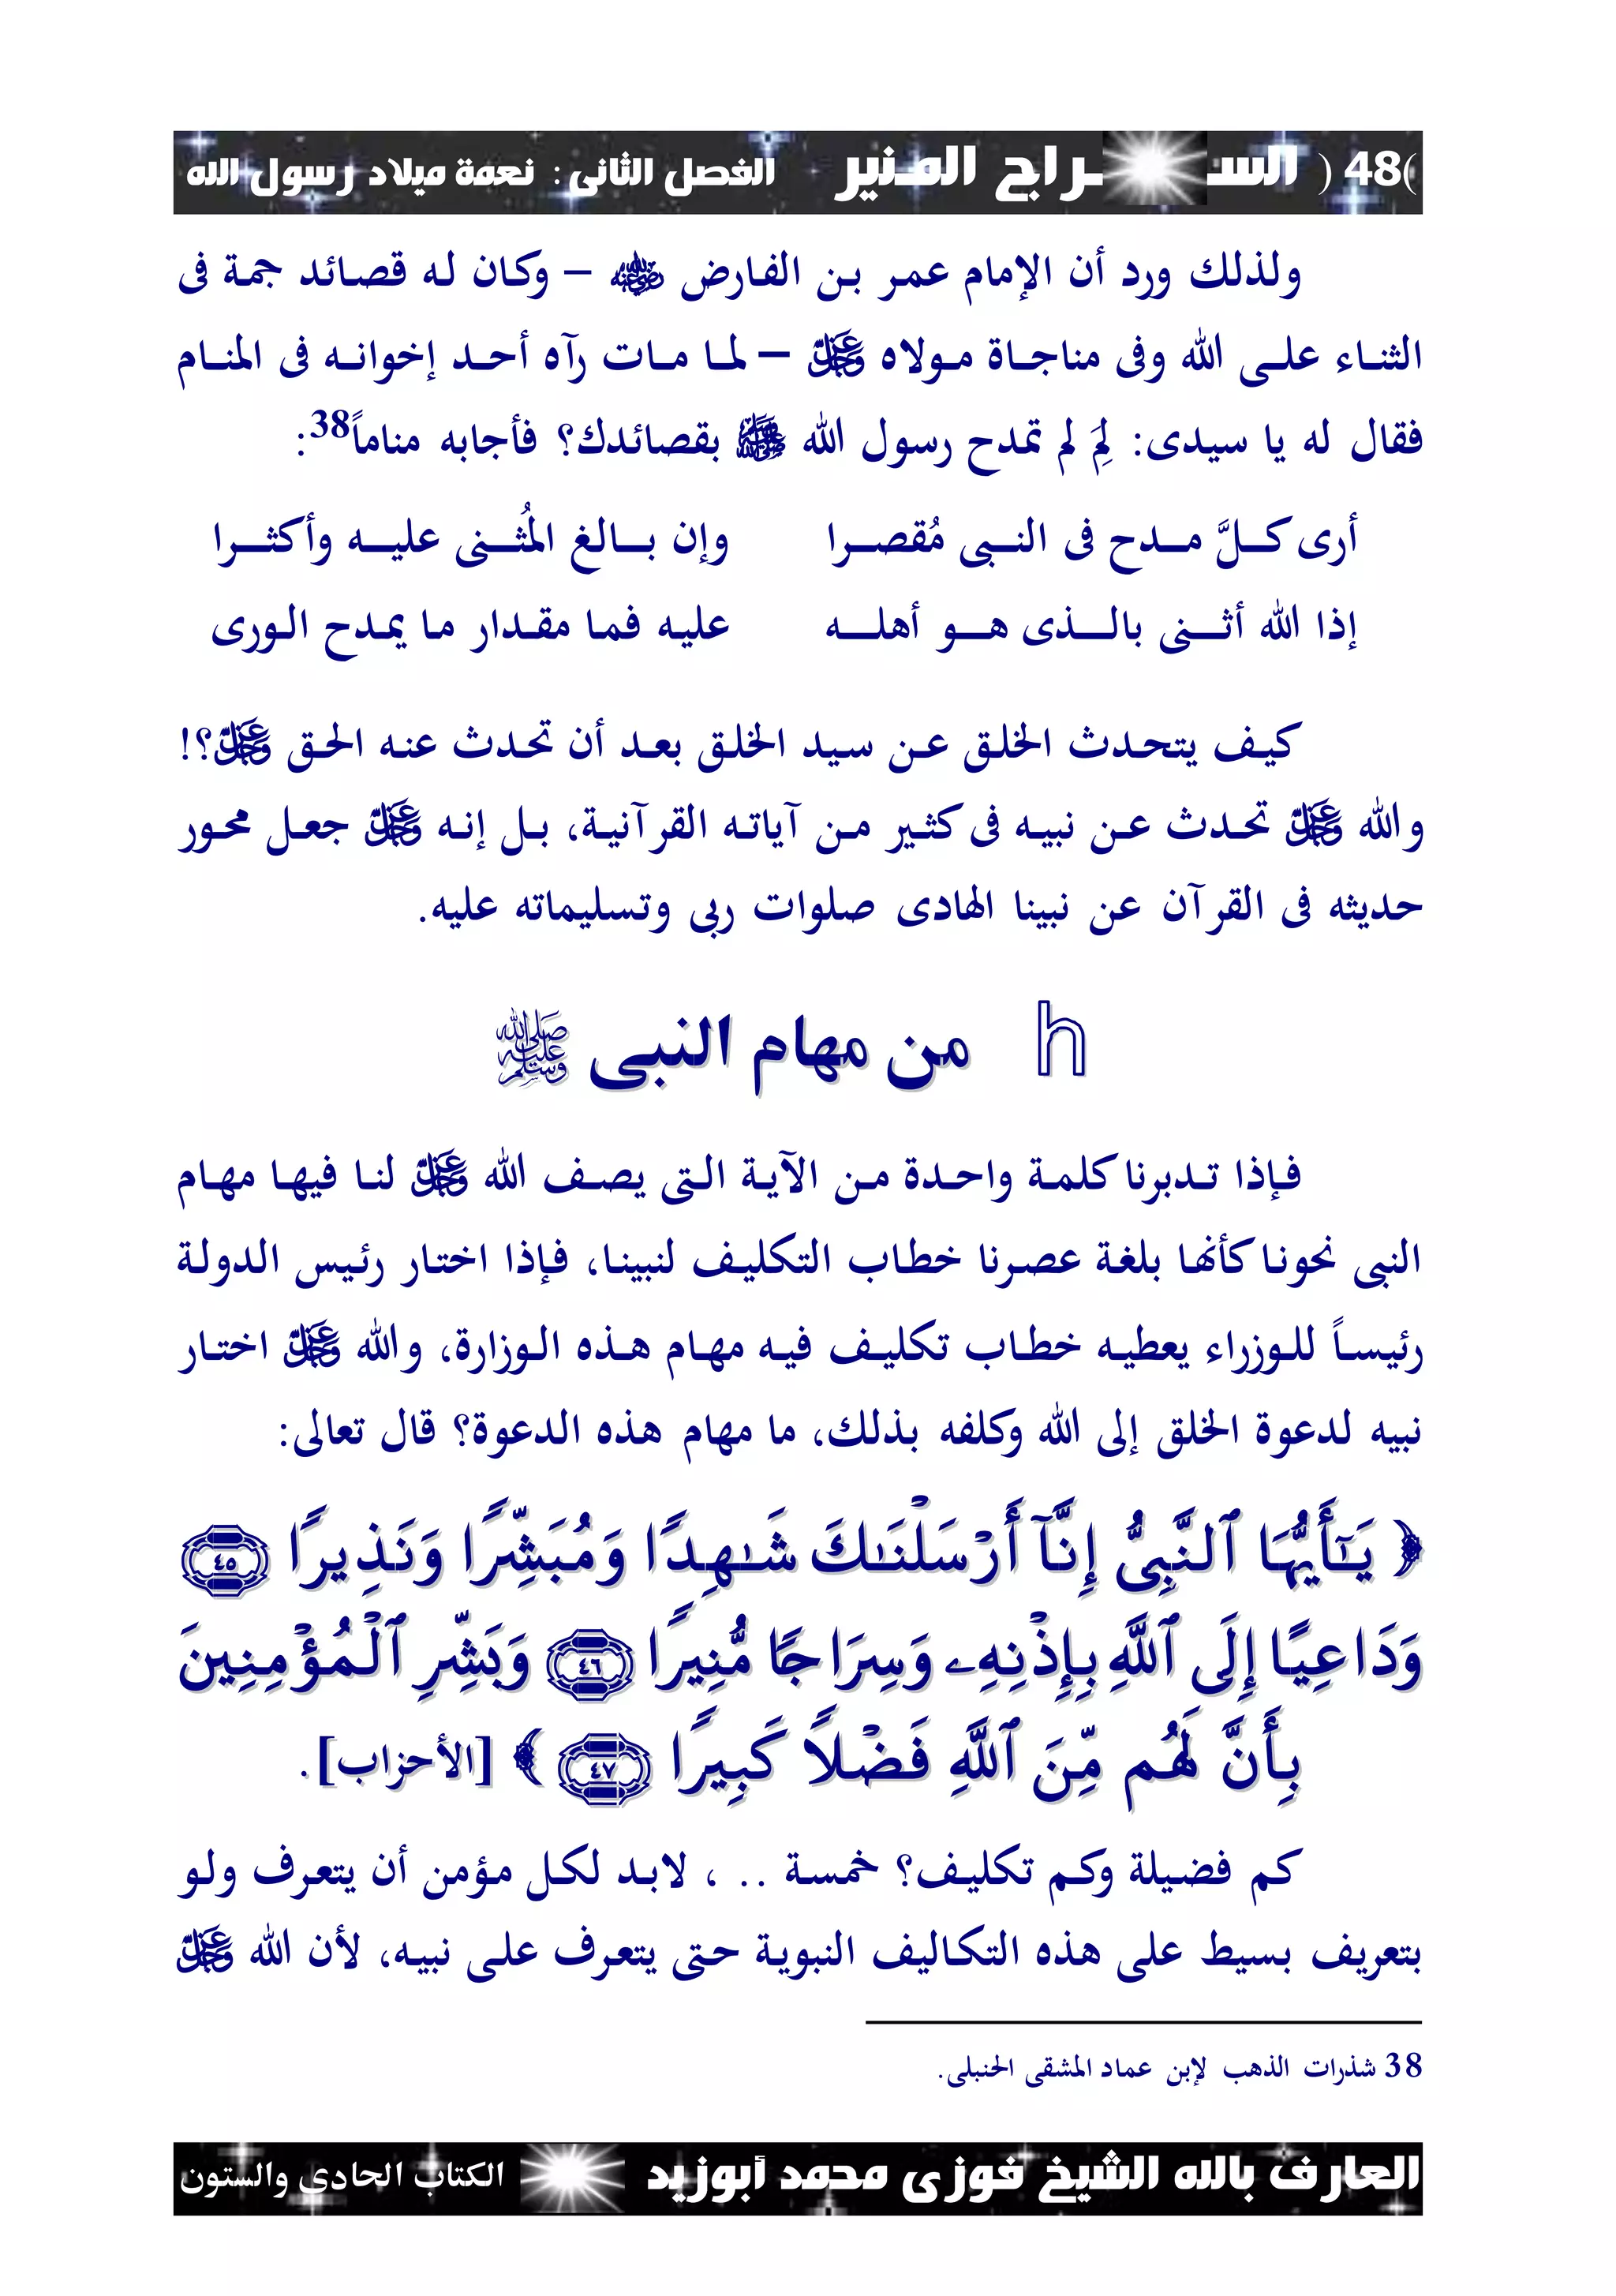 (48) الســراج المـنير الفصل الثانى: نعمة ميلاد رسول الله
ولذلك ورد أن الإمام عمر بن الفارض ﵁ – وكان له قصائد جمة فى
الثناء على الله وفى مناجاة مولاه ﷿ – لما مات رآه أحد إخوانه فى المنام
فقال له يا سيدى: لِمَ لم تمدح رسول الله ﷺ بقصائدك؟ فأجابه مناماً38:
أرى كلَّ مدح فى النبى مُقصرا وإن بالغ المُثنى عليه وأكثرا
إذا الله أثنى بالذى هو أهله عليه فما مقدار ما يمدح الورى
كيف يتحدث الخلق عن سيد الخلق بعد أن تحدث عنه الحق ﷿؟!
والله ﷿ تحدث عن نبيه فى كثير من آياته القرآنية، بل إنه ﷿ جعل محور
حديثه فى القرآن عن نبينا الهادى صلوات ربى وتسليماته عليه.
h من مهام النبى ﷺ
فإذا تدبرنا كلمة واحدة من الآية التى يصف الله ﷿ لنا فيها مهام
النبى نحونا كأنها بلغة عصرنا خطاب التكليف لنبينا، فإذا اختار رئيس الدولة
رئيساً للوزراء يعطيه خطاب تكليف فيه مهام هذه الوزارة، والله ﷿ اختار
نبيه لدعوة الخلق إلى الله وكلفه بذلك، ما مهام هذه الدعوة؟ قال تعالى:
﴿ يَـٰٓأَيُّهَا ٱلنَّبِىُّ إِنَّآ أَرْسَلْنَـٰكَ شَـٰهِدًا وَمُبَشِّرًا وَنَذِيرًا ٤٥
وَدَاعِيًا إِلَى ٱللَّهِ بِإِذْنِهِۦ وَسِرَاجًا مُّنِيرًا ٤٦ وَبَشِّرِ ٱلْمُؤْمِنِينَ
بِأَنَّ لَهُم مِّنَ ٱللَّهِ فَضْلًا كَبِيرًا ٤٧ ﴾ [الأحزاب].
كم فضيلة وكم تكليف؟ خمسة .. ، لابد لكل مؤمن أن يتعرف ولو
بتعريف بسيط على هذه التكاليف النبوية حتى يتعرف على نبيه، لأن الله ﷿
38 شذرات الذهب لإبن عماد المشقى الحنبلى.
العارف بالله الشيخ فوزى محمد أبوزيد الكتاب الحادى والستون